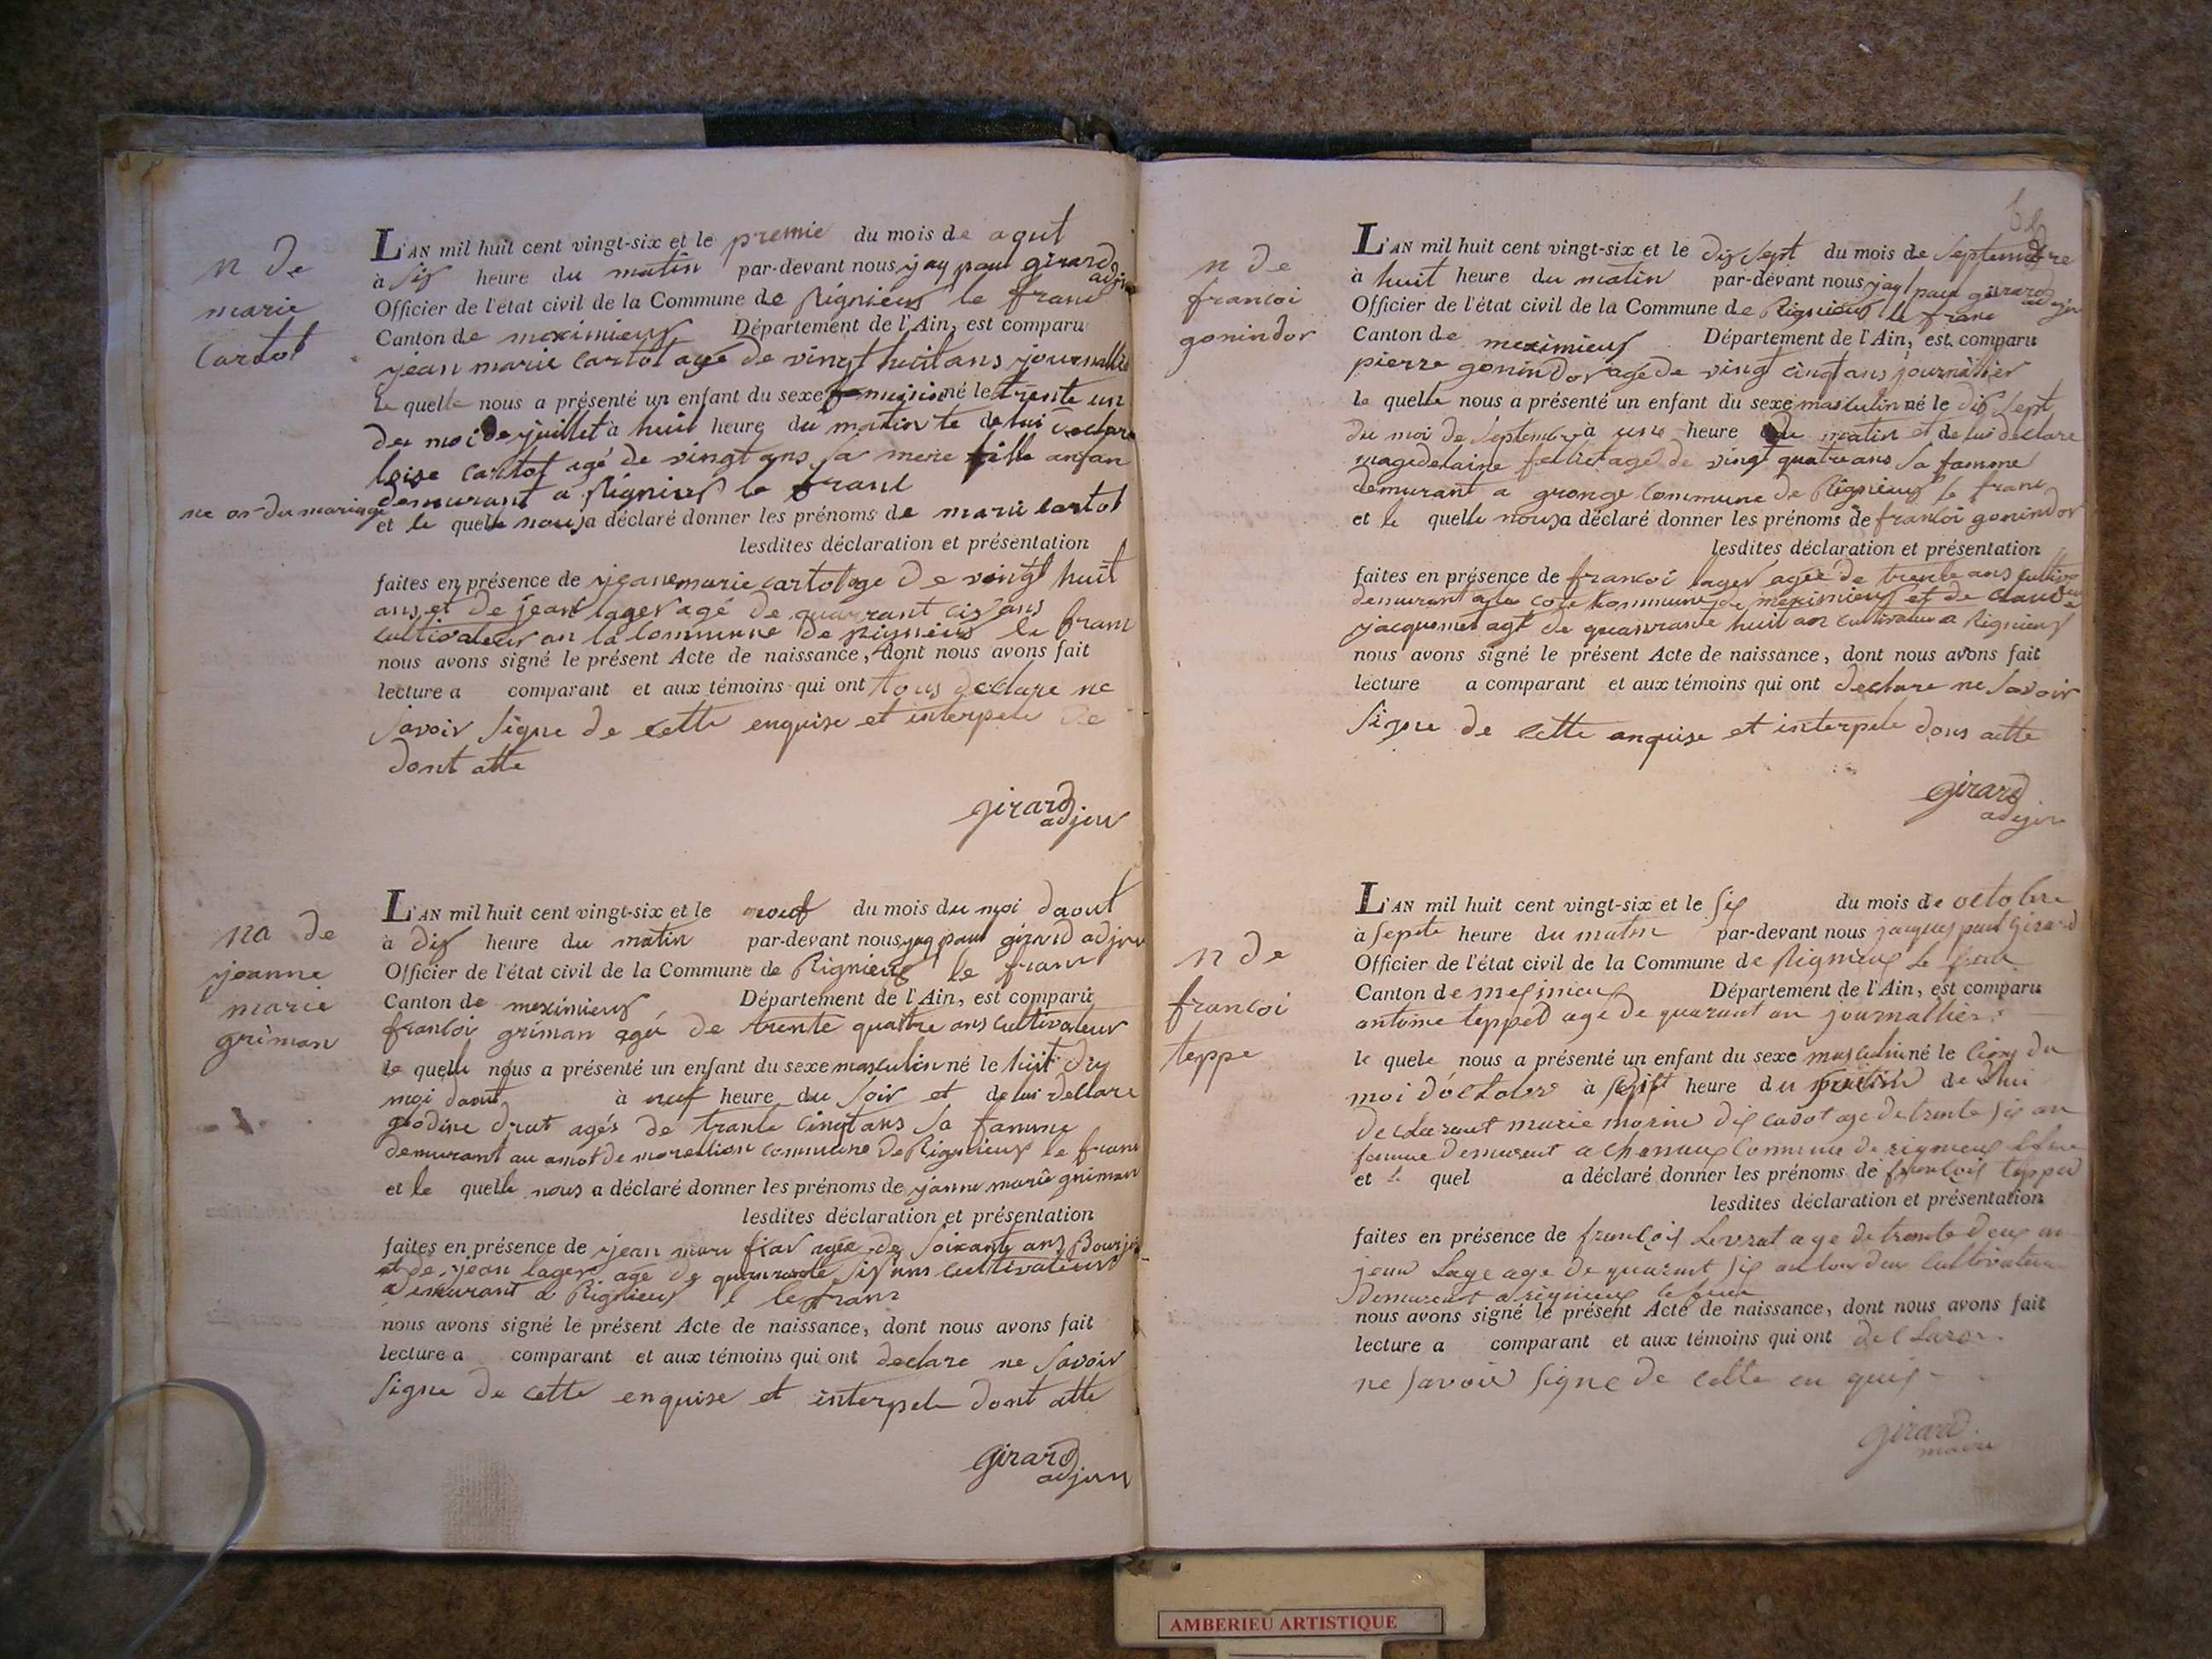 n de
marie
Cartot
L'AN mil huit cent vingt-six et le premie du mois de aout
à six heure du matin par-devant nous jaq paul girard adjin
Officier de l'état civil de la Commune de Rignieux le franc
Canton de meximieux Département de l'Ain, est comparu
jean marie Cartot agé de vingt huit ans journallie
le quelle nous a présenté un enfant du sexe feminin né le trente un
du moi de juillet à huit heure du matin te de lui declare
loise Cartot agé de vingt ans sa mere fille anfan
ne or du mariage
demurant a Rignieux le franc
et le quelle nous a déclaré donner les prénoms de marie cartot
lesdites déclaration et présentation
faites en présence de jeane marie cartot age de vingt huit
ans et de jean lager agé de quarrant cis ans
cultivateur an la Commune de Rignieux le franc
nous avons signé le présent Acte de naissance, dont nous avons fait
lecture a comparant et aux témoins qui ont tous declare ne
savoir signe de cette enquise et interpele de
dont atte
girard
adjen
na de
jeanne
marie
griman
L'AN mil huit cent vingt-six et le neuf du mois du moi daout
à dix heure du matin par-devant nous jaq paul girard adjen
Officier de l'état civil de la Commune de Rignieux le franc
Canton de meximieux Département de l'Ain, est comparu
francoi griman agé de trente quattre ans cultivateur
le quelle nous a présenté un enfant du sexe masculin né le huit du
moi daout à neuf heure du soir et de lui declare
drut agés de trante cinq ans sa famme
demurant au de commune de Rignieux le franc
et le quelle nous a déclaré donner les prénoms de janne marie griman
lesdites déclaration et présentation
faites en présence de jean mari agée de soixante ans
et de jean lager agé de quarrante six ans cultivateur
demurant a Rignieux le franc
nous avons signé le présent Acte de naissance, dont nous avons fait
lecture a comparant et aux témoins qui ont declare ne savoir
signe de cette enquise et interpele dont atte
girard
adjen
n de
francoi
gonindor
L'AN mil huit cent vingt-six et le dix sept du mois de septembre
à huit heure du matin par-devant nous jaq paul girard
Officier de l'état civil de la Commune de Rignieux le franc
Canton de meximieux Département de l'Ain, est comparu
pierre gonindor agé de vingt cinq ans journallier
le quelle nous a présenté un enfant du sexe masculin né le dix sept
du moi de septembre à une heure du matin et de lui declare
magedelaine agé de vingt quatre ans sa famme
demurant a gronge commune de Rignieux le franc
et le quelle nous a déclaré donner les prénoms de francoi gonindor
lesdites déclaration et présentation
faites en présence de francoi lager agée de trente ans
demurant a la cote kommune de meximieux et de claude
jacquemet agé de quanrante huit an cultivateur a Rignieux
nous avons signé le présent Acte de naissance, dont nous avons fait
lecture a comparant et aux témoins qui ont declare ne savoir
signe de cette anquise et interpele dons atte
girard
n de
francoi
teppe
L'AN mil huit cent vingt-six et le six du mois de octobre
à sepete heure du matin par-devant nous jacques paul girard
Officier de l'état civil de la Commune de Rignieux le
Canton de Département de l'Ain, est comparu
antoine tepped age de quarant an journallier
le quele nous a présenté un enfant du sexe masculin né le du
moi d'octobre à heure du de
marie morin age de trente six an
famme demurent a commune de rignieux
et le quel a déclaré donner les prénoms de francois tepped
lesdites déclaration et présentation
faites en présence de francois Levrat age de trente deux an
jean Lage age de quarant six an cultivateur
demurent a rignieux le
nous avons signé le présent Acte de naissance, dont nous avons fait
lecture a comparant et aux témoins qui ont
ne savoir signe de cette en quis
girard
maire
AMBERIEU ARTISTIQUE